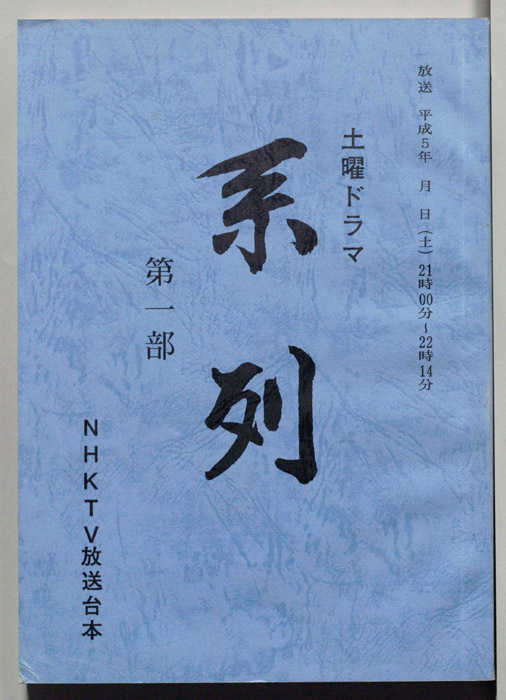 放送 平成5年 月 日(土)21時00分~22時14分
土曜ドラマ
系列
第一部
NHKTV放送台本